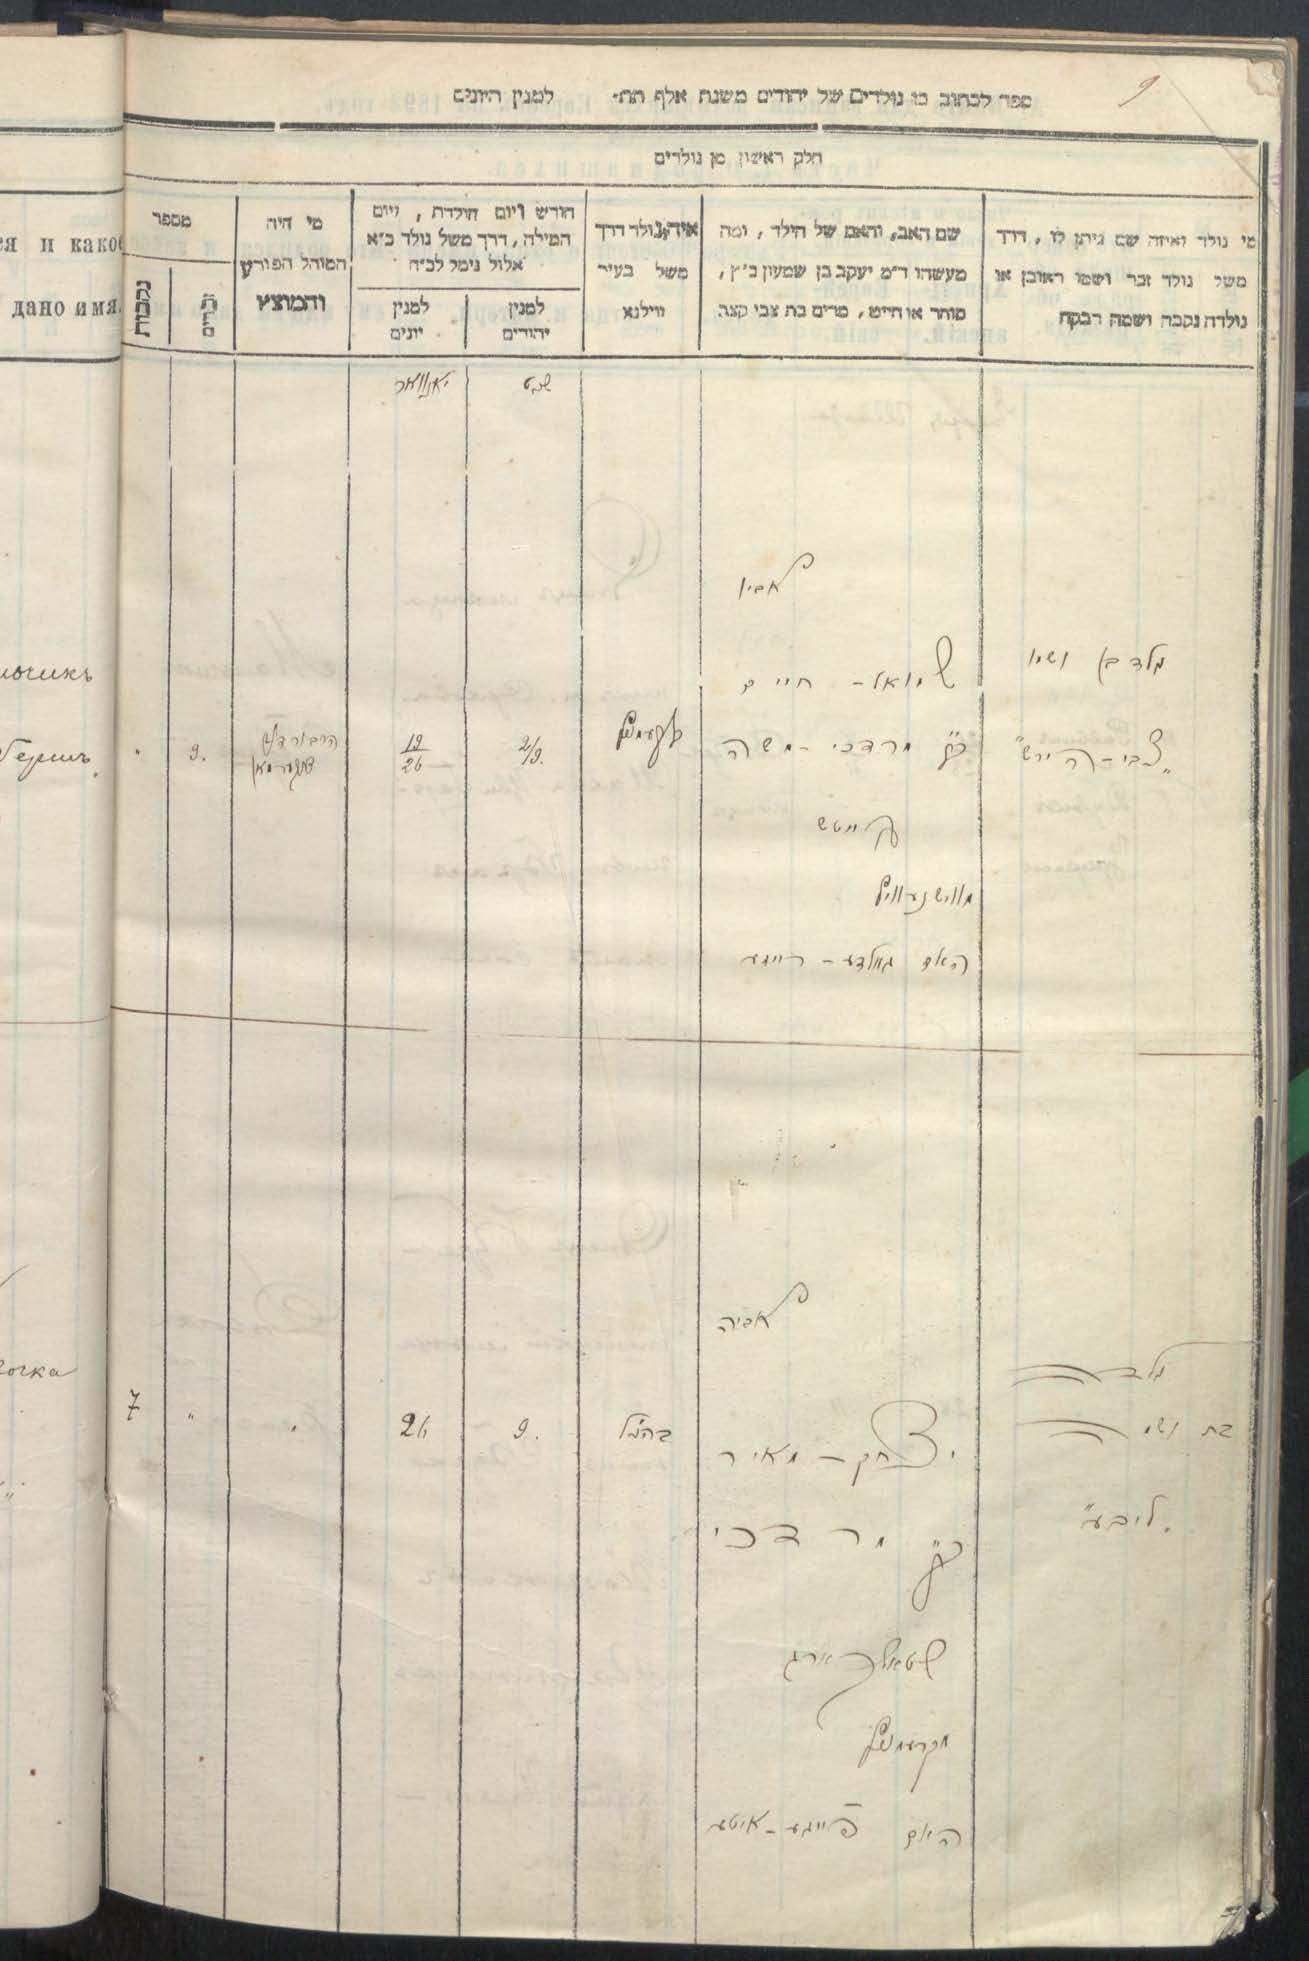 9
ספר לכתוב בו נולדים של יהודים משנת אלף תת׳ למנין היונים
חלק ראשון מן נולדים
מי נולד ואיזה שם ניתן לו, דרך
משל נולד זכר ושמו ראובן או
נולדה נקבה ושמה רבקה
שם האב, והאם של הילד, ומה
מעשהו ד״מ יעקב בן שמעון כ״ץ,
סוחר או חייט, מרים בת צבי קצב
איה נולד דרך
משל בעיר
ווילנא
חודש ויום הולדת, ויום
המילה, דרך משל נולד כ״א
אלול נימל לכ״ח
למנין
יהודים
למנין
יונים
מי היה
המוהל הפורע
והמוצץ
מספר
זכרים
נקבות
ся и какое
дано имя.
שבט
יאנוואר
לאביו
נולד בן ושמו
שמואל - חיים
"צבי - הירש"
מרדכי - משה
קרעמניץ
2/9.
19
26
9.
מווישנעוויץ
האם גאלדע - רייזע
льчикъ
Гершъ
לאביה
נולדה
בת ושמה
"ליבע"
יצחק - מאיר
מרדכי
מקרעמניץ
האם פייגע - איטע
בהנ״ל
9.
26
"
7
вочка